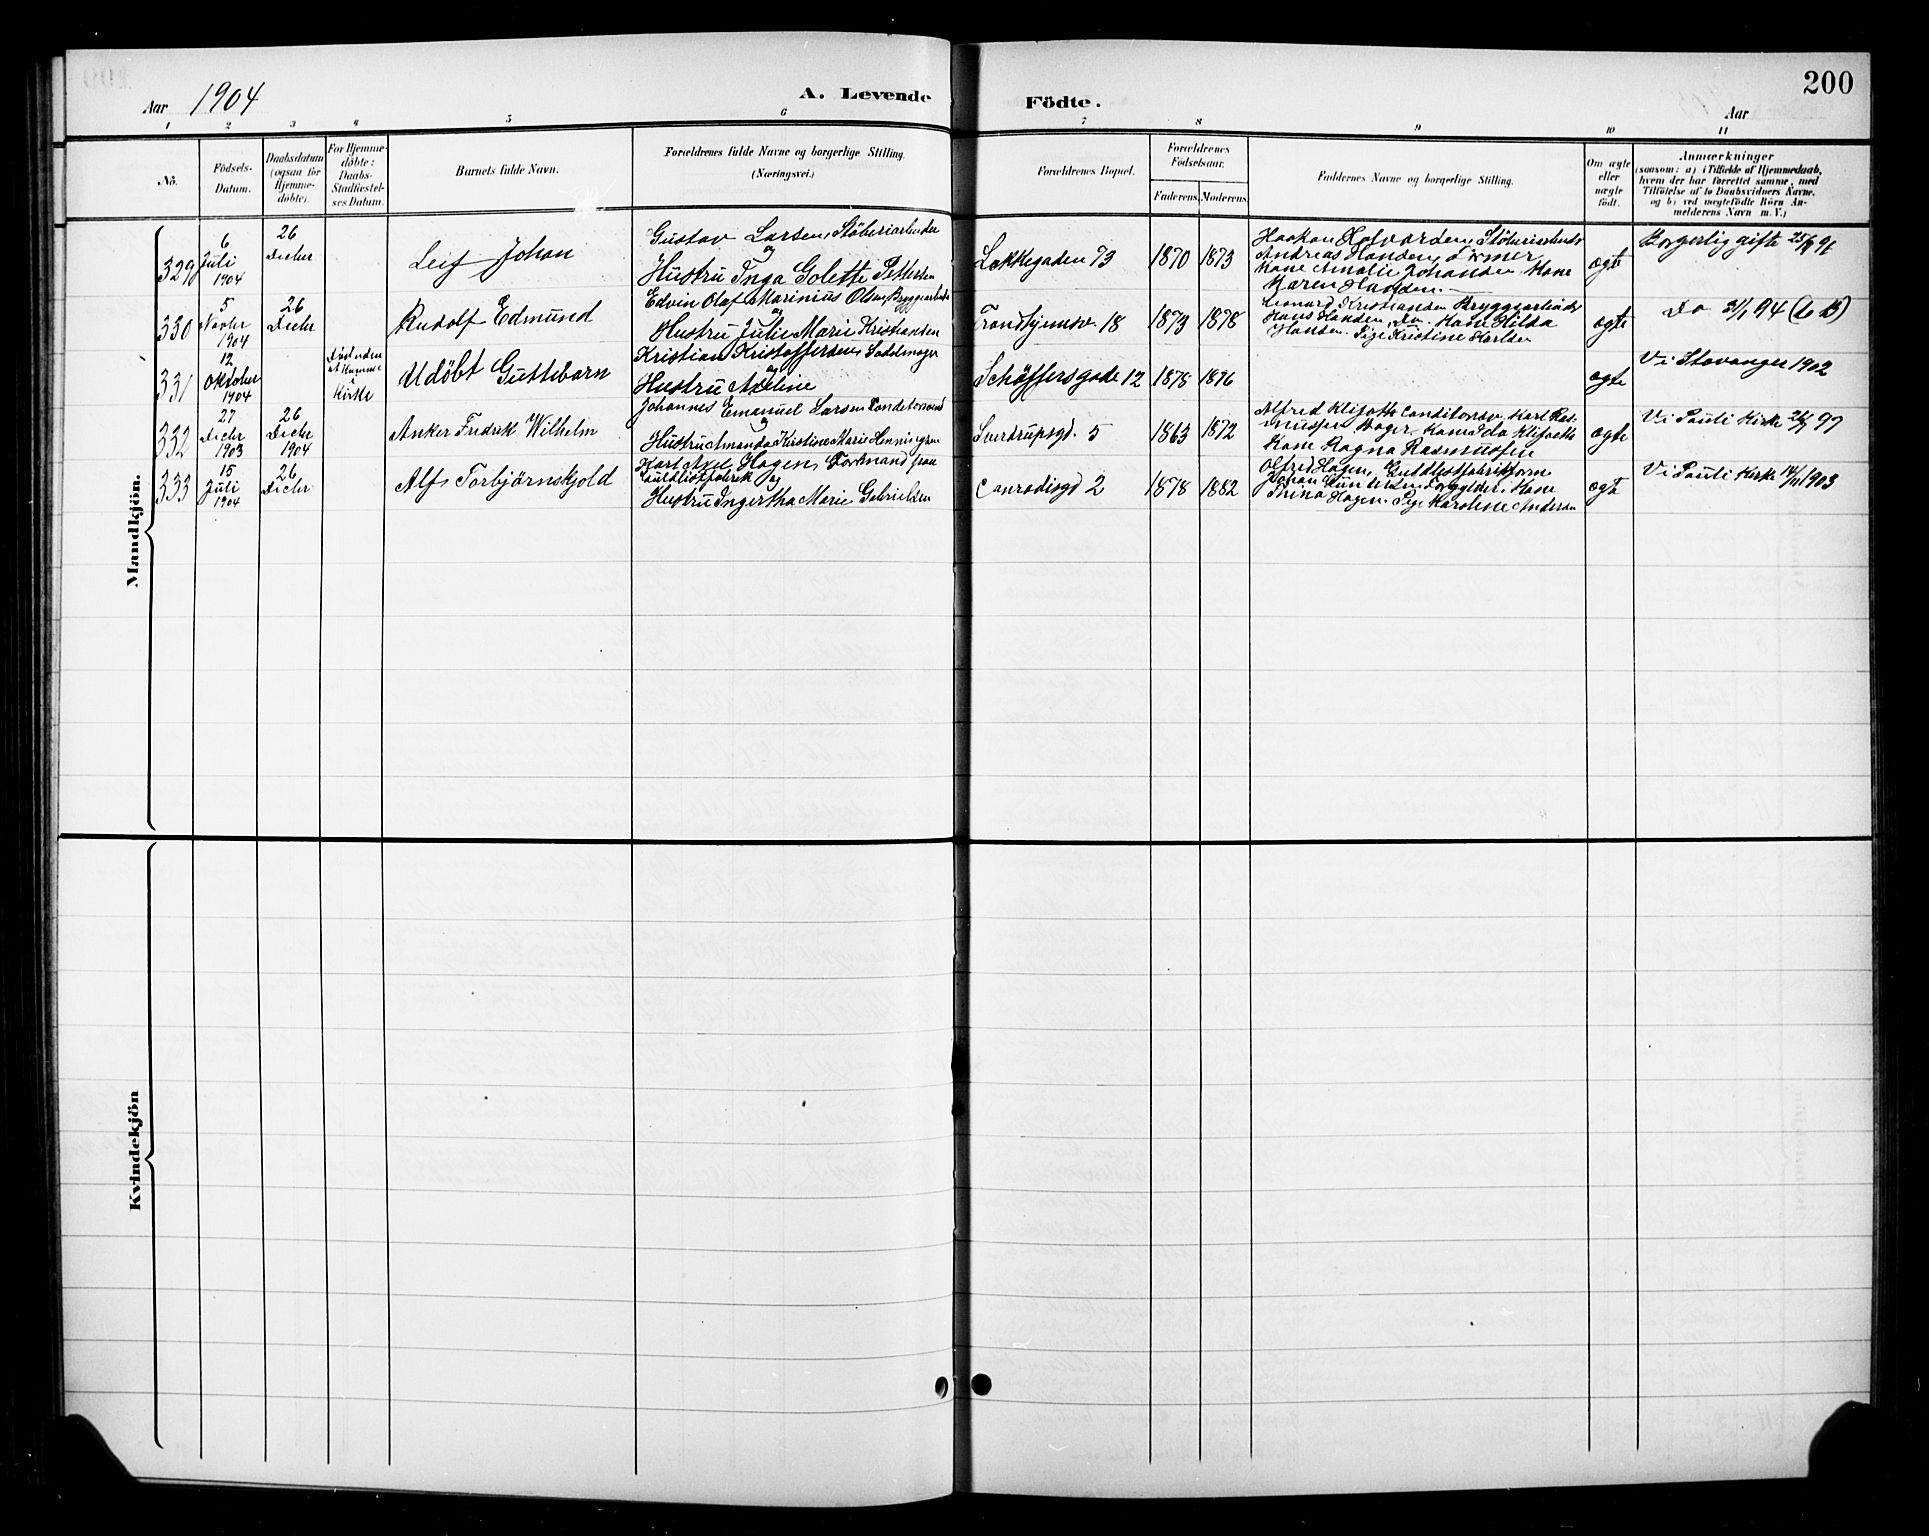 Aar 1904
A. Levende
Födte.
Aar
200
1 2 3 4 5 6 7 8 9 10 11
No.
Födsels-
Datum.
Daabsdatum
(ogsaa for
Hjemme-
döbte).
For Hjemme-
döbte:
Daabs-
Stadfæstel-
ses Datum.
Barnets fulde Navn.
Forældrenes fulde Navne og borgerlige Stilling.
(Næringsvei.)
Forældrenes Bopæl.
Forældrenes
Födselsaar.
Faderens. Moderens.
Faddernes Navne og borgerlige Stilling.
Om ægte
eller
uægte
födt.
Anmærkninger
(saasom: a) i Tilfælde af Hjemmedaab,
hvem der har forrettet samme, med
Tilföielse af to Daabsvidners Navne.
og b) ved uægtefödte Börn An-
melderens Navn m. V.)
Mandkjön.
329
6
Juli
1904
26
Decbr
Leif Johan
Gustav Larsen, Stöberiarbeider
og
Hustru Inga Golette Pettersen
Lakkegaden 73
1870
1873
Haakon Halvorsen, Stöberiarbeider
Andreas Hansen,
Kone Amalie Johansen, Kone
Karen Hansen.
ægte
Borgerlig gifte
330
5
Novbr
1904
26
Decbr
Rudolf Edmund
Edvin Olaf Marinius Olsen Bryggearbeider
og
Hustru Julie Marie Kristiansen
Trondhjemsv. 18
1873
1878
Leonard Kristiansen Bryggearbeider
Hans Hansen, Do. Kone Hilda
Hansen. Pige Kristine Karlsen
ægte
Do 31/1 94
331
12
Oktober
1904
i
Kirke
Udöbt Guttebarn
Kristian Kristoffersen, Sadelmager
og
Hustru Axeline
Schöffersgade 12
1878
1876
ægte
Vi Stavanger 1902
332
27
Decbr
1903
26
Decbr
1904
Anker Fredrik Wilhelm
Johannes Emanuel Larsen Conditorsvend
og
Hustru Amanda Kristine Marie Henningsen
Sverdrupsgd. 5
1863
1872
Alfred Klifoth Conditorsv. Karl Ras-
mussen Bager, Kone Ida Klifoth
Kone Ragna Rasmussen
ægte
Vi Pauli Kirke 97
333
15
Juli
1904
26
Decbr
Alf Torbjörnskjold
Karl Axel Hagen, Formand paa
Guldlistfabrik og
Hustru Ingertha Marie Gabrielsen
Conradisgd 2
1878
1882
Alfred Hagen, Guldlistfabrikform
Johan Gundersen Forgylder, Kone
Trina Hagen, Pige Karoline Andersen
ægte
Vi Pauli Kirke 14/11 1903
Kvindekjön